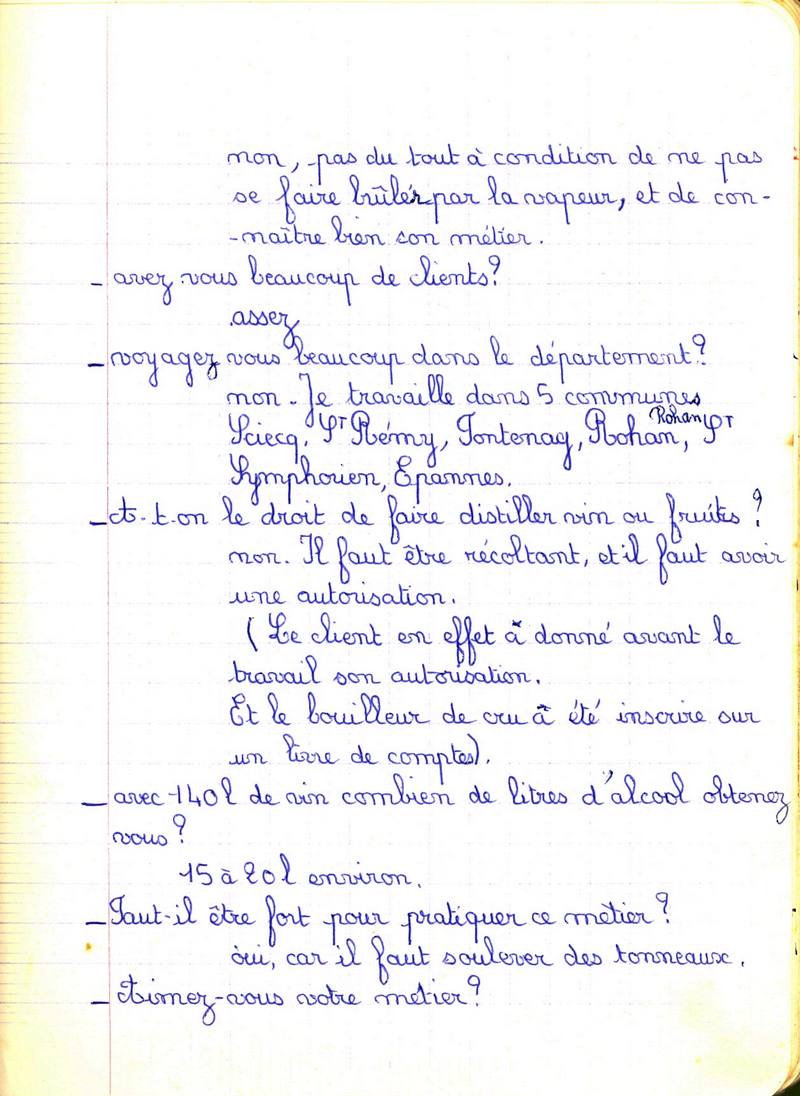 non, pas du tout à condition de ne pas
se faire brûler par la vapeur, et de con-
-naître bien son métier.
_ avez vous beaucoup de clients?
assez
_ voyagez vous beaucoup dans le département?
non. Je travaille dans 5 communes
Rohan
Sciecq, St Rémy, Fontenay, Rohan, St
Symphorien, Epannes.
_ A-t-on le droit de faire distiller vin ou fruits ?
non. Il faut être récoltant, et il faut avoir
une autorisation.
( Le client en effet à donné avant le
travail son autorisation.
Et le bouilleur de cru à été inscrire sur
un livre de comptes).
_ avec 140 l de vin combien de litres d'alcool obtenez
vous?
15 à 20 l environ.
_ Faut-il être fort pour pratiquer ce métier?
oui, car il faut soulever des tonneaux.
_ Aimez-vous votre métier?